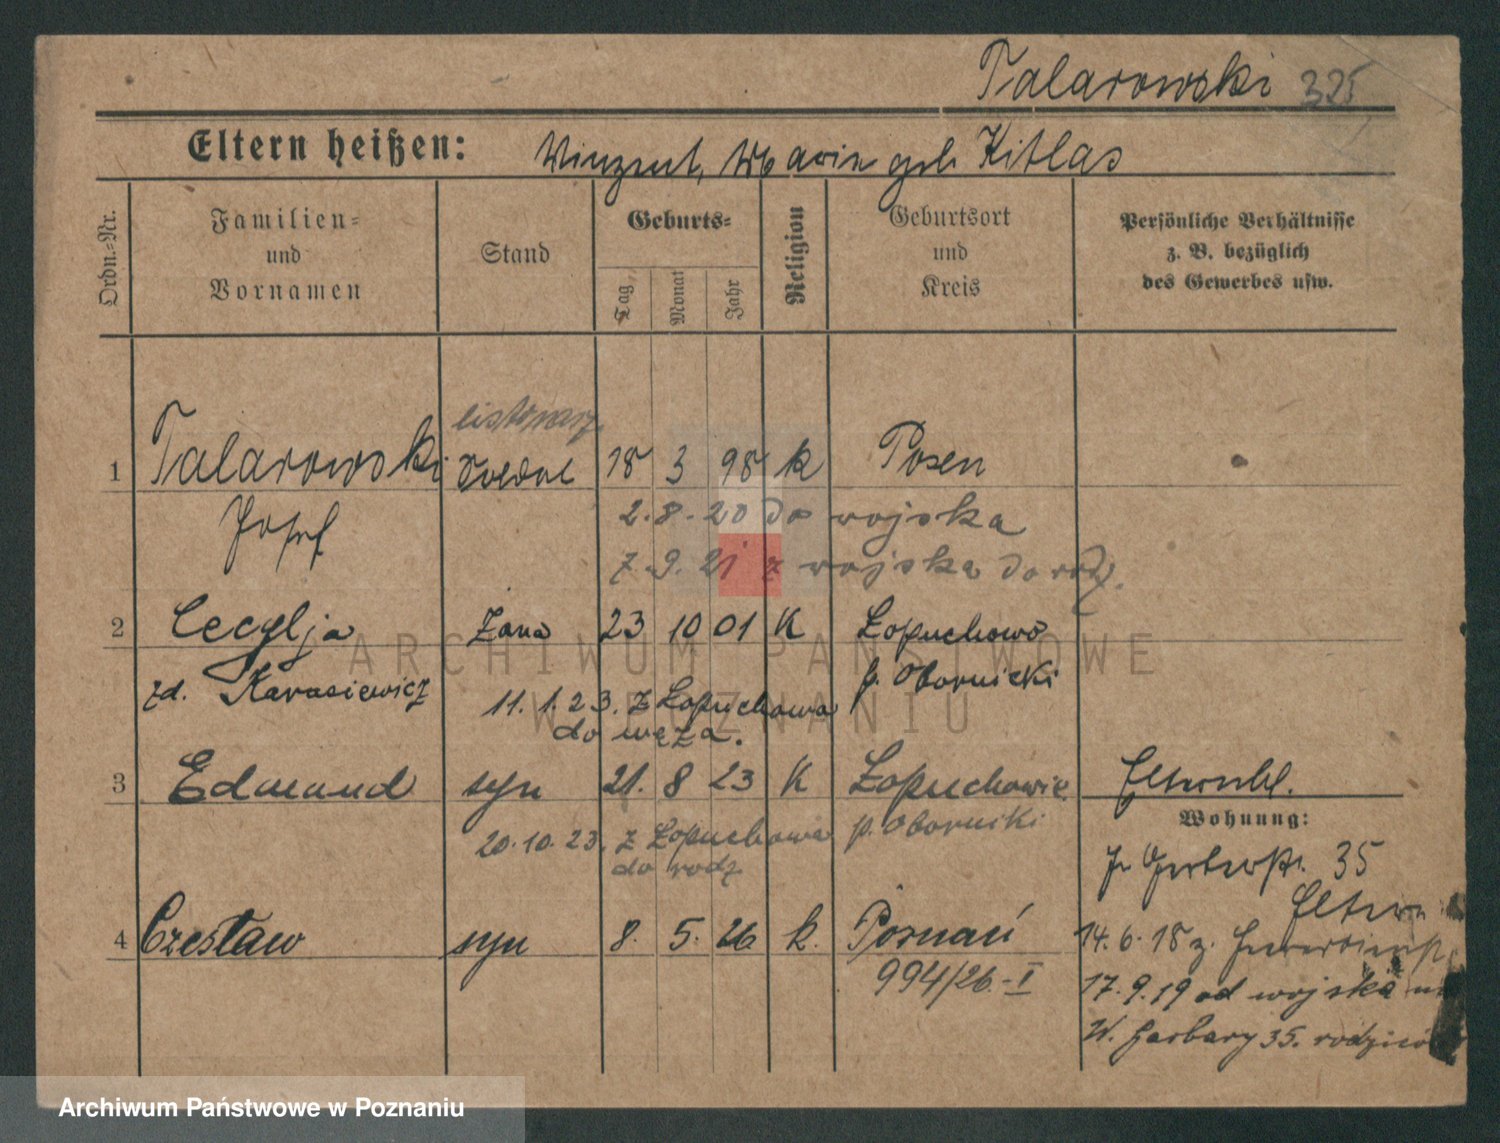 Talarowski 325
Eltern heißen: Winzent, Marie geb Kitlas
Ordn.=Nr.
Familien=
und
Vornamen
Stand
Geburts=
Tag
Monat
Jahr
Religion
Geburtsort
und
Kreis
Persönliche Verhältnisse
z. B. bezüglich
des Gewerbes usw.
listonosz
1 Talarowski Soldat 18 3 98 k Posen
Josef 2.8.20 do wojska
7.9.21 z wojska do rodz.
2 Cecylja żona 23 10 01 K Łopuchowo
zd. Karasiewicz p. Obornicki
11.1.23. z Łopuchowa
do męża.
3 Edmund syn 21. 8 23 K Łopuchowie
p. Oborniki
20.10.23. z Łopuchowa
do rodz
4 Czesław syn 8. 5. 26 k. Poznań
994/26.-I
Wohnung:
35
Eltern
14.6.18 z.
17.9.19 od wojska
W. Garbary 35. rodziców
ARCHIWUM PAŃSTWOWE
W POZNANIU
Archiwum Państwowe w Poznaniu